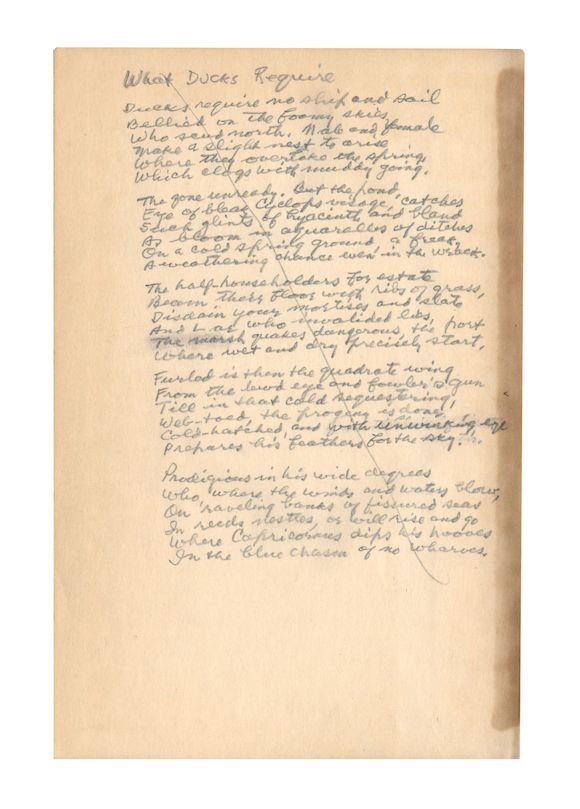 What Ducks Require
Ducks require no ship and sail
Bellied on the foamy skies,
Who scud north. Male and female
Make a slight nest to arise
Where they overtake the spring,
Which clogs with muddy going.
The zone unready. But the pond,
Eye of bleak Cyclops visage, catches
Such glints of hyacinth and bland
As bloom in aquarelles of ditches
On a cold spring ground, a freak,
A weathering chance even in the wrack.
The half-householders for estate
Beam their floor with ribs of grass,
Disdain your mortises and slate
And Lar who invalided lies,
The marsh quakes dangerous, the port
Where wet and dry precisely start.
Furled is then the quadrate wing
From the lewd eye and fowler's gun
Till in that cold sequestering,
Web-toed, the progeny is done,
Cold-hatched, and with unwinking eye
Prepares his feathers for the sky.
Prodigious in his wide degrees
Who, where the winds and waters blow,
On raveling banks of fissured seas
In reeds nestles, or will rise and go
Where Capricornus dips his hooves
In the blue chasm of no wharves.